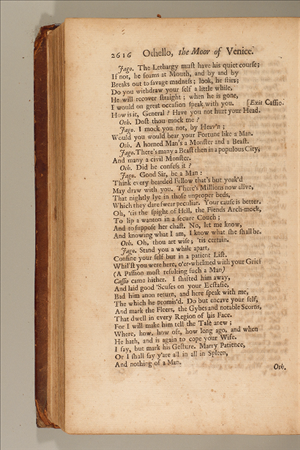 2616 Othello, the Moor of Venice.
Jago. The Lethargy must have his quiet course;
If not, he foams at Mouth, and by and by
Breaks out to savage madness; look, he stirs;
Do you withdraw your self a little while,
He will recover straight; when he is gone,
I would on great occasion speak with you. [Exit Cassio.
How is it, General? Have you not hurt your Head.
Oth. Dost thou mock me?
Jago. I mock you not, by Heav'n;
Would you would bear your Fortune like a Man.
Oth. A horned Man's a Monster and a Beast.
Jago. There's many a Beast then in a populous City,
And many a civil Monster.
Oth. Did he confess it?
Jago. Good Sir, be a Man:
Think every bearded Fellow that's but yoak'd
May draw with you. There's Millions now alive,
That nightly lye in those unproper beds,
Which they dare swear peculiar. Your cause is better.
Oh, 'tis the spight of Hell, the Fiends Arch-mock,
To lip a wanton in a secure Couch;
And to suppose her chast. No, let me know,
And knowing what I am, I know what she shall be.
Oth. Oh, thou art wise; 'tis certain.
Jago. Stand you a while apart,
Confine your self but in a patient List.
Whil'st you were here, o'er-whelmed with your Grief
(A Passion most resulting such a Man)
Cassio came hither. I shifted him away,
And laid good 'Scuses on your Ecstasie,
Bad him anon return, and here speak with me,
The which he promis'd. Do but encave your self,
And mark the Fleers, the Gybes and notable Scorns,
That dwell in every Region of his Face.
For I will make him tell the Tale anew;
Where, how, how oft, how long ago, and when
He hath, and is again to cope your Wife.
I say, but mark his Gesture. Marry Patience,
Or I shall say y'are all in all in Spleen,
And nothing of a Man.
Oth.